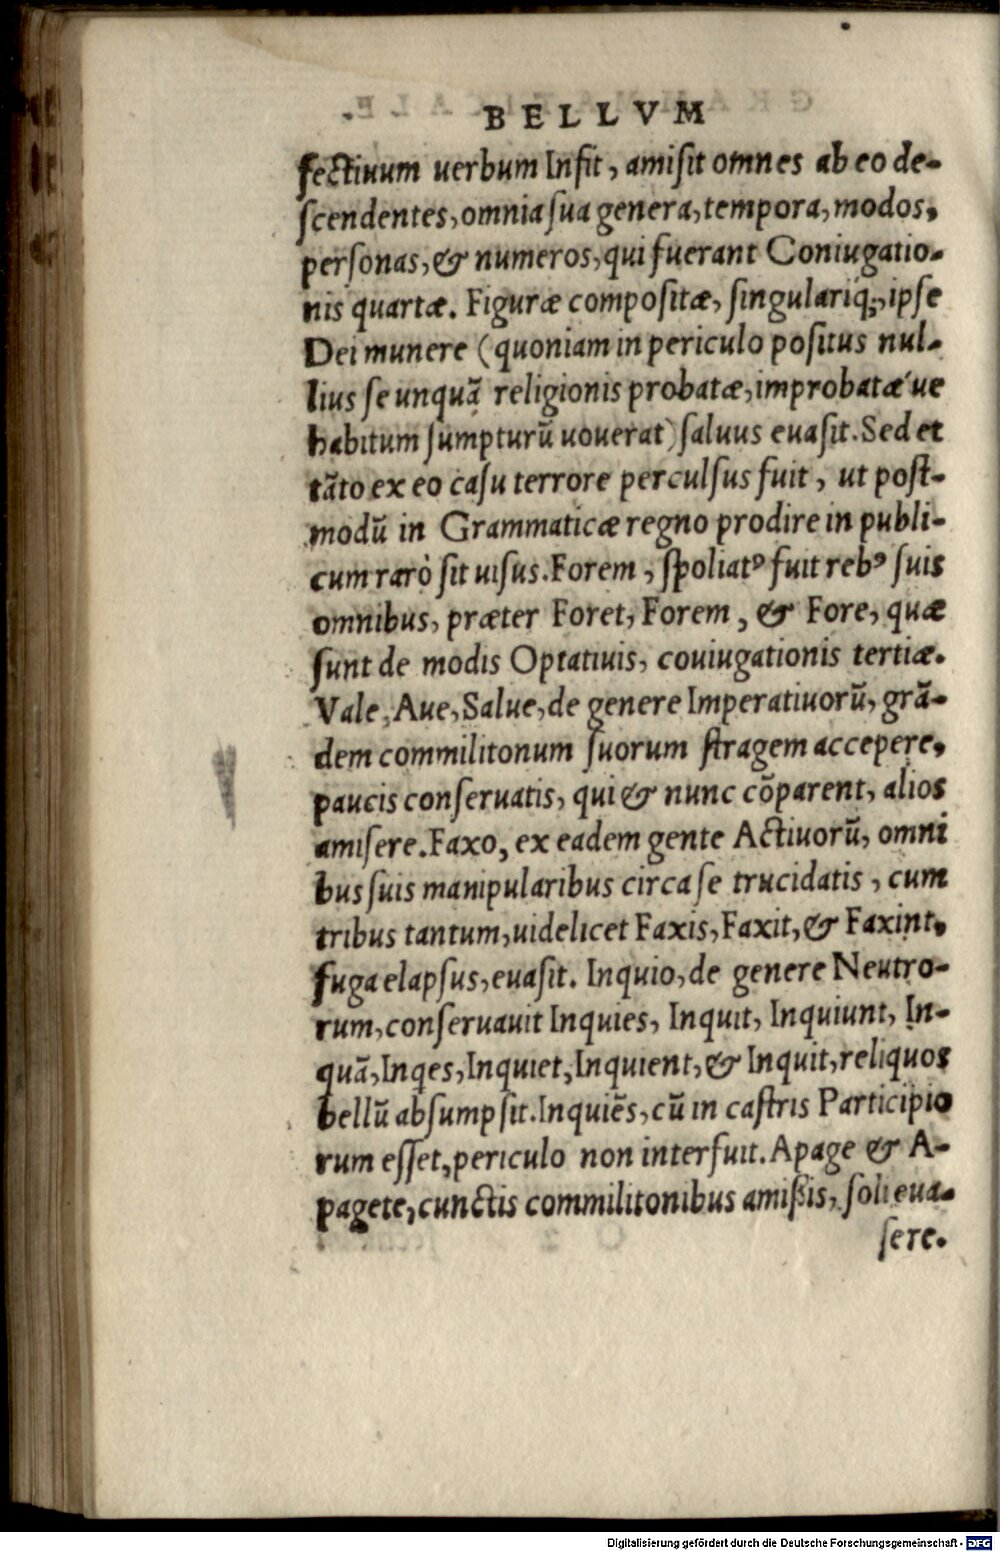 BELLVM
fectiuum uerbum Infit, amiſit omnes ab eo de-
ſcendentes, omnia ſua genera, tempora, modos,
perſonas, & numeros, qui fuerant Coniugatio-
nis quartæ. Figuræ compoſitæ, ſingulariq́;, ipſe
Dei munere (quoniam in periculo poſitus nul-
lius ſe unquā religionis probatæ, improbatæ´ue
habitum ſumpturū uouerat) ſaluus euaſit. Sed et
tāto ex eo caſu terrore perculſus fuit, ut poſt-
modū in Grammaticæ regno prodire in publi-
cum rarò ſit uiſus. Forem, ſpoliatꝰ fuit rebꝰ ſuis
omnibus, præter Foret, Forem, & Fore, quæ
ſunt de modis Optatiuis, couiugationis tertiæ.
Vale, Aue, Salue, de genere Imperatiuorū, grā-
dem commilitonum ſuorum ſtragem accepere,
paucis conſeruatis, qui & nunc cōparent, alios
amiſere. Faxo, ex eadem gente Actiuorū, omni
bus ſuis manipularibus circa ſe trucidatis, cum
tribus tantum, uidelicet Faxis, Faxit, & Faxint,
fuga elapſus, euaſit. Inquio, de genere Neutro-
rum, conſeruauit Inquies, Inquit, Inquiunt, In-
quā, Inqes, Inquiet, Inquient, & Inquit, reliquos
bellū abſumpſit. Inquiēs, cū in caſtris Participio
rum eſſet, periculo non interfuit. Apage & A-
pagete, cunctis commilitonibus amißis, ſoli eua-
ſere.
Digitalisierung gefördert durch die Deutsche Forschungsgemeinschaft - DFG